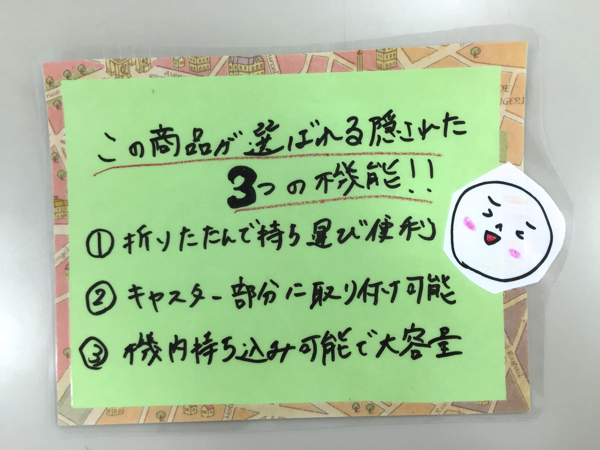 この商品が選ばれる隠された
3つの機能!!
① 折りたたんで持ち運び便利
② キャスター部分に取り付け可能
③ 機内持ち込み可能で大容量